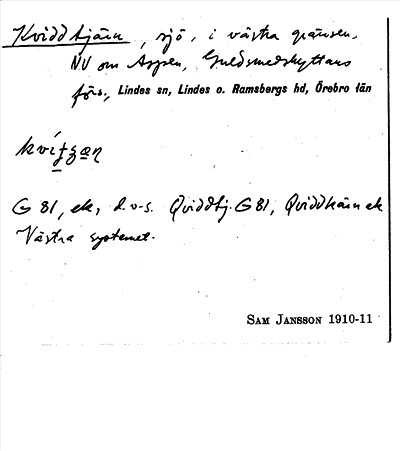 Kviddtjärn, sjö, i västra gränsen,
NV om Aspen, Guldsmedshyttans
förs., Lindes sn, Lindes o. Ramsbergs hd, Örebro län
G 81, ek, d.v.s. Qviddtj. G 81, Qviddkärn ek
Västra systemet.
SAM JANSSON 1910-11